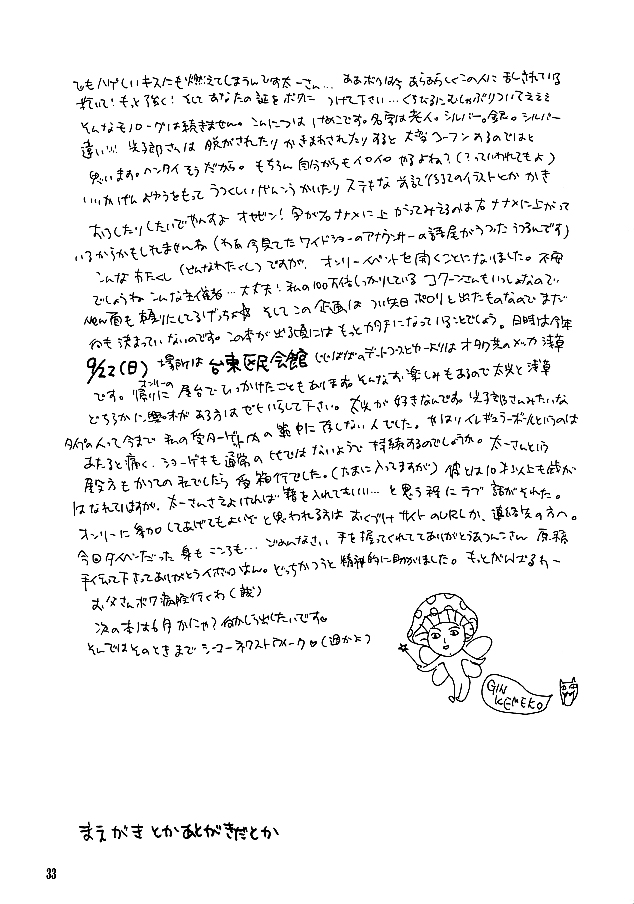 でもハゲしいキスにも燃えてしまうんです太一さん… ああボクは今 あらあらしくこの人に 乱されている
もっと強く! そして あなたの証を ボクに つけて下さい…くちびるにむしゃぶりついてえええ
そんなモノローグは続きません。こんにちは けめこです。名字は老人。シルバー。銀。シルバー
違い!!! 光子郎さんは 脱がされたり かきまわされたり すると 大変コーフン するのではと
思います。ヘンタイ そう だから。もちろん 自分からも イロイロ やるよね?(?っていわれてもよ)
いいかげん ようをもって うつくしいげんこう かいたり ステキな のイラストとか かき
したりしたいでやんすよ オヤビン! 字が右ナナメに上がってみえるのは右ナナメに上がって
いるからかもしれませんね(わあ 今見てたワイドショーのアナウンサーの語尾がうつった うつるんです)
こんな わたくし(どんなわたくし)ですが、オンリーイベントを開くことになりました。不安
でしょうね こんな主催者…大丈夫!私の100万倍しっかりしている コクーンさんもいっしょなので…
そしてこの企画は つい先日 ポロリと出たものなので まだ
何も決まっていないのです。この本が出る頃には もっとカタチになっていることでしょう。日時は今年
9/22(日) 場所は 台東区民会館 オタク夫のメッカ 浅草
です。オンリーの帰りに 屋台で ひっかけたことも ありまね そんなお楽しみもあるので 太光と浅草
どちらかに興味がある方は ぜひいらして下さい。太光が好きなんです。光子郎さんみたいな
タイプの人って今まで 私の受ターゲット内の 範中に 存しない人でした。やはりイレギュラーボールというのは
あたると痛く、ショーゲキも通常の比ではないようで 持続するのでしょうか。太一さんという
殿方も かつての 私でしたら 受 一行でした。(たまに入ってますが) 彼とは10才以上も歳が
はなれていますが、太一さんさえよければ 籍を入れてもいい…と思う程に ラブ 話がそれた。
オンリーに参加してあげてもよいぞ と思われる方は おくづけ サイトのURLか、連絡先の方へ。
今回タイヘンだった 身も こころも… ごめんなさい 手を握ってくれてて ありがとう あつんこさん 原稿
手伝って下さって ありがとうイボロはん。どっちかっつうと 精神的に助かりました。もっとがんばるわー
お父さんボク 病院行くわ(誠)
次の本は6月 かにゃ? 何かしら出したいです。
そんではそのときまで シーユーネクストウィーク♡(週かよ)
GIN
KEMEKO
まえがき とか あとがきだとか
33